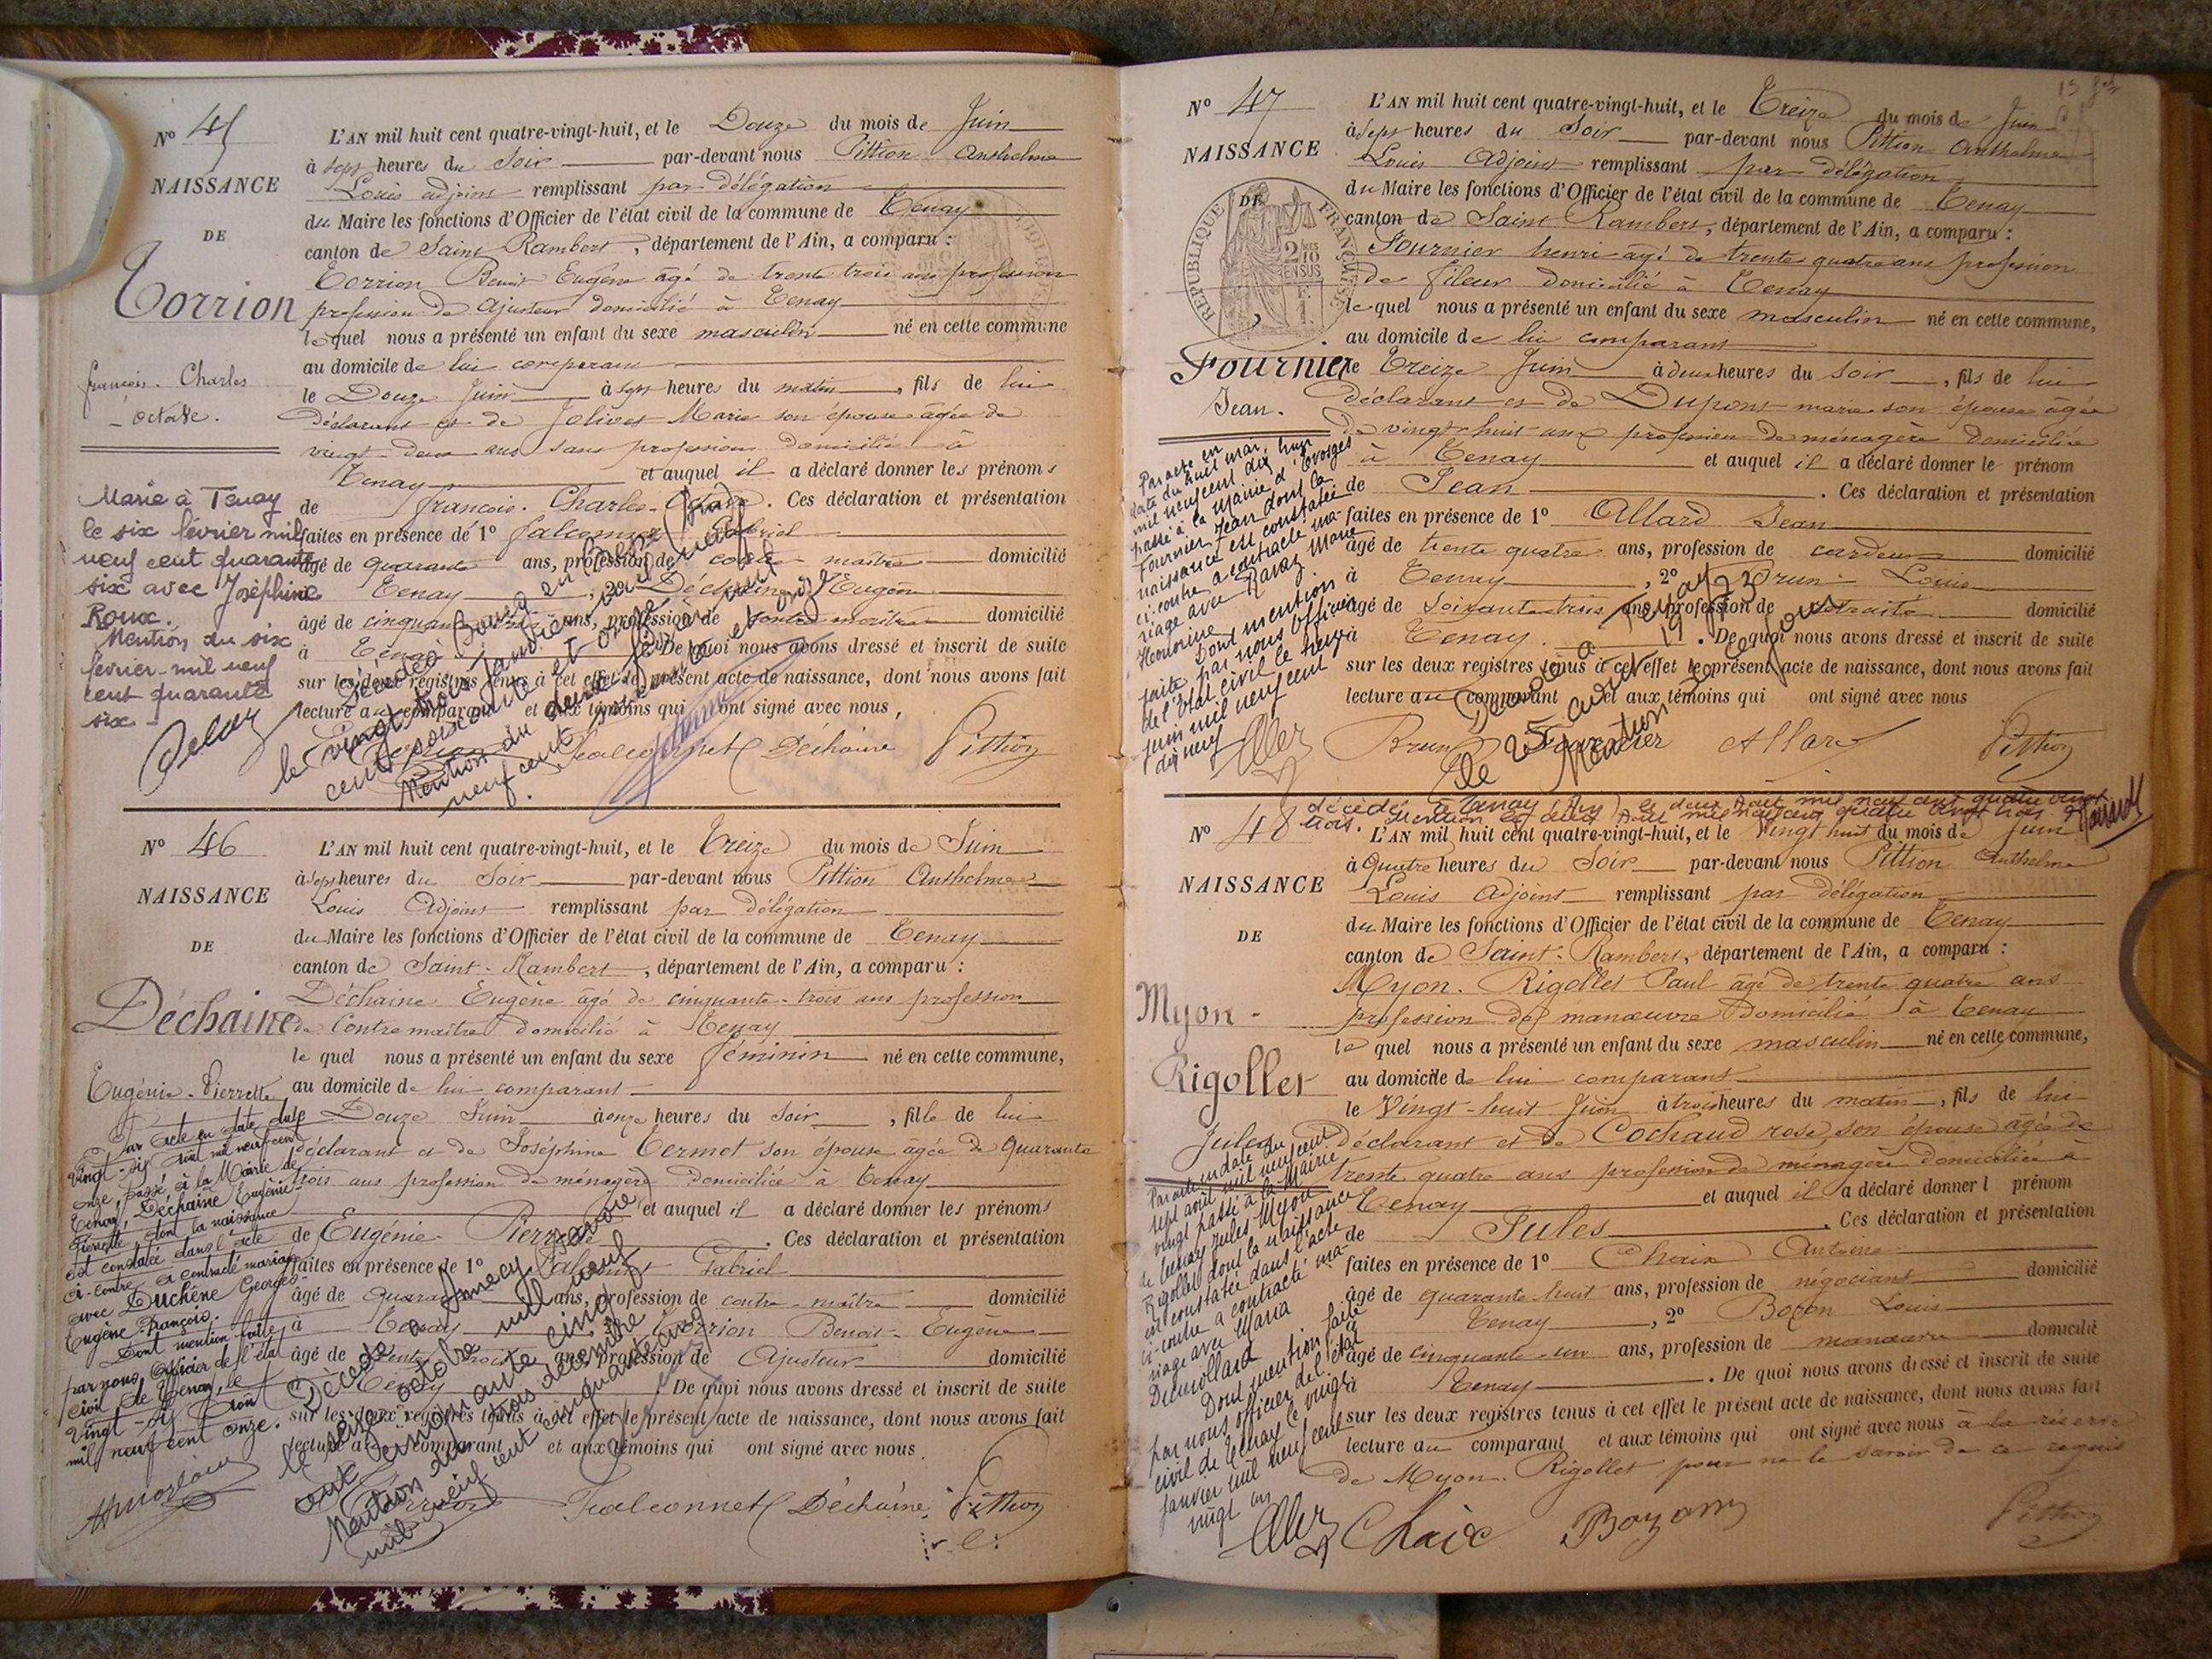 N° 45
NAISSANCE
DE
Torrion
françois - Charles
- octave.
Marié à Tenay
le six février mil
neuf cent quarante
six avec Joséphine
Roux.
Mention du six
février mil neuf
cent quarante
six -
L'AN mil huit cent quatre-vingt-huit, et le Douze du mois de Juin
à sept heures du Soir par-devant nous Pittion Anthelme
Louis adjoint remplissant par délégation
du Maire les fonctions d'Officier de l'état civil de la commune de Tenay
canton de Saint Rambert, département de l'Ain, a comparu :
Torrion Benoit Eugène âgé de trente trois ans profession
profession de Ajusteur domicilié à Tenay
lequel nous a présenté un enfant du sexe masculin né en cette commune
au domicile de lui comparant
le Douze Juin à sept heures du matin, fils de lui
déclarant et de Jolivet Marie son épouse âgée de
vingt-deux ans sans profession domiciliée à
Tenay et auquel il a déclaré donner les prénoms
de françois - Charles - Octave. Ces déclaration et présentation
faites en présence de 1° falconnet Gabriel
âgé de quarante ans, profession de contre-maître domicilié
à Tenay, 2° Déchaine Eugène
âgé de cinquante trois ans, profession de contre-maître domicilié
à Tenay. De quoi nous avons dressé et inscrit de suite
sur les deux registres tenus à cet effet le présent acte de naissance, dont nous avons fait
lecture au comparant et aux témoins qui ont signé avec nous,
Décédé à Bourg en Bresse (Ain)
le vingt trois janvier mil neuf
cent soixante et onze.
Mention du deux février mil
neuf cent soixante et onze
Torrion Falconnet Déchaine Pittion
N° 46
NAISSANCE
DE
Déchaine
Eugénie - Pierrette
Par acte en date du
vingt-six août mil neuf cent
onze, passé à la Mairie de
Tenay, Déchaine Eugénie-
Pierrette, dont la naissance
est constatée dans l'acte
ci-contre a contracté mariage
avec Duchêne Georges
Eugène François.
Dont mention faite
par nous, officier de l'état
civil de Tenay, le
vingt-six août
mil neuf cent onze.
L'AN mil huit cent quatre-vingt-huit, et le Treize du mois de Juin
à sept heures du Soir par-devant nous Pittion Anthelme
Louis Adjoint remplissant par délégation
du Maire les fonctions d'Officier de l'état civil de la commune de Tenay
canton de Saint-Rambert, département de l'Ain, a comparu :
Déchaine Eugène âgé de cinquante-trois ans profession
de Contremaître domicilié à Tenay
lequel nous a présenté un enfant du sexe féminin né en cette commune,
au domicile de lui comparant
le Douze Juin à onze heures du Soir, fille de lui
déclarant et de Joséphine Termet son épouse âgée de Quarante
trois ans profession de ménagère domiciliée à Tenay
et auquel il a déclaré donner les prénoms
de Eugénie - Pierrette. Ces déclaration et présentation
faites en présence de 1° Falconnet Gabriel
âgé de quarante ans, profession de contre-maître domicilié
à Tenay, 2° Torrion Benoit-Eugène
âgé de trente trois ans, profession de Ajusteur domicilié
à Tenay. De quoi nous avons dressé et inscrit de suite
sur les deux registres tenus à cet effet le présent acte de naissance, dont nous avons fait
lecture au comparant et aux témoins qui ont signé avec nous.
Décédé à Annecy Hte Savoie
le seize octobre mil neuf
cent cinquante cinq
Mention du trois décembre
mil neuf cent cinquante cinq
Torrion Falconnet Déchaine Pittion
N° 47
NAISSANCE
DE
RÉPUBLIQUE FRANÇAISE
Fournier
Jean.
Par acte en
date du huit mai
mil neuf cent dix huit
passé à la Mairie d'Evosges
Fournier Jean dont la
naissance est constatée
ci-contre a contracté ma-
riage avec Ravaz Marie
Honorine
Dont mention
faite par nous officier
de l'Etat civil le treize
juin mil neuf cent
dix neuf
L'AN mil huit cent quatre-vingt-huit, et le Treize du mois de Juin
à sept heures du Soir par-devant nous Pittion Anthelme
Louis Adjoint remplissant par délégation
du Maire les fonctions d'Officier de l'état civil de la commune de Tenay
canton de Saint Rambert, département de l'Ain, a comparu :
Fournier henri âgé de trente quatre ans profession
de fileur domicilié à Tenay
lequel nous a présenté un enfant du sexe masculin né en cette commune,
au domicile de lui comparant
le Treize Juin à deux heures du Soir, fils de lui
déclarant et de Dupont marie son épouse âgée
de vingt-huit ans profession de ménagère domiciliée
à Tenay et auquel il a déclaré donner le prénom
de Jean. Ces déclaration et présentation
faites en présence de 1° Allard Jean
âgé de trente quatre ans, profession de cardeur domicilié
à Tenay, 2° Brun Louis
âgé de soixante trois ans, profession de retraité domicilié
à Tenay. De quoi nous avons dressé et inscrit de suite
sur les deux registres tenus à cet effet le présent acte de naissance, dont nous avons fait
lecture au comparant et aux témoins qui ont signé avec nous
Décédé à Tenay
le 25 août 1973
Mention de ce jour
Brun Fournier Allard Pittion
N° 48
décédé à Tenay (Ain) le deux Août mil neuf cent quatre vingt
trois. Mention le deux Août mil neuf cent quatre vingt trois
NAISSANCE
DE
Myon -
Rigollet
Jules
Par acte en date du
sept avril mil neuf cent
vingt passé à la Mairie
de Tenay Jules Myon
Rigollet dont la naissance
est constatée dans l'acte
ci-contre a contracté ma-
riage avec Maria
Dumollard
Dont mention faite
par nous officier de l'état
civil de Tenay le vingt
janvier mil neuf cent
vingt un
L'AN mil huit cent quatre-vingt-huit, et le Vingt huit du mois de Juin
à Quatre heures du Soir par-devant nous Pittion Anthelme
Louis Adjoint remplissant par délégation
du Maire les fonctions d'Officier de l'état civil de la commune de Tenay
canton de Saint-Rambert, département de l'Ain, a comparu :
Myon-Rigollet Paul âgé de trente quatre ans
profession de manœuvre domicilié à Tenay
lequel nous a présenté un enfant du sexe masculin né en cette commune,
au domicile de lui comparant
le Vingt-huit Juin à trois heures du matin, fils de lui
déclarant et de Cochaud rose, son épouse âgée de
trente quatre ans profession de ménagère domiciliée à
Tenay et auquel il a déclaré donner l prénom
de Jules. Ces déclaration et présentation
faites en présence de 1° Chaix Antoine
âgé de quarante huit ans, profession de négociant domicilié
Tenay, 2° Bozon Louis
âgé de cinquante-un ans, profession de manœuvre domicilié
à Tenay. De quoi nous avons dressé et inscrit de suite
sur les deux registres tenus à cet effet le présent acte de naissance, dont nous avons fait
lecture au comparant et aux témoins qui ont signé avec nous à la réserve
de Myon-Rigollet pour ne le savoir de ce requis
Chaix Bozon Pittion